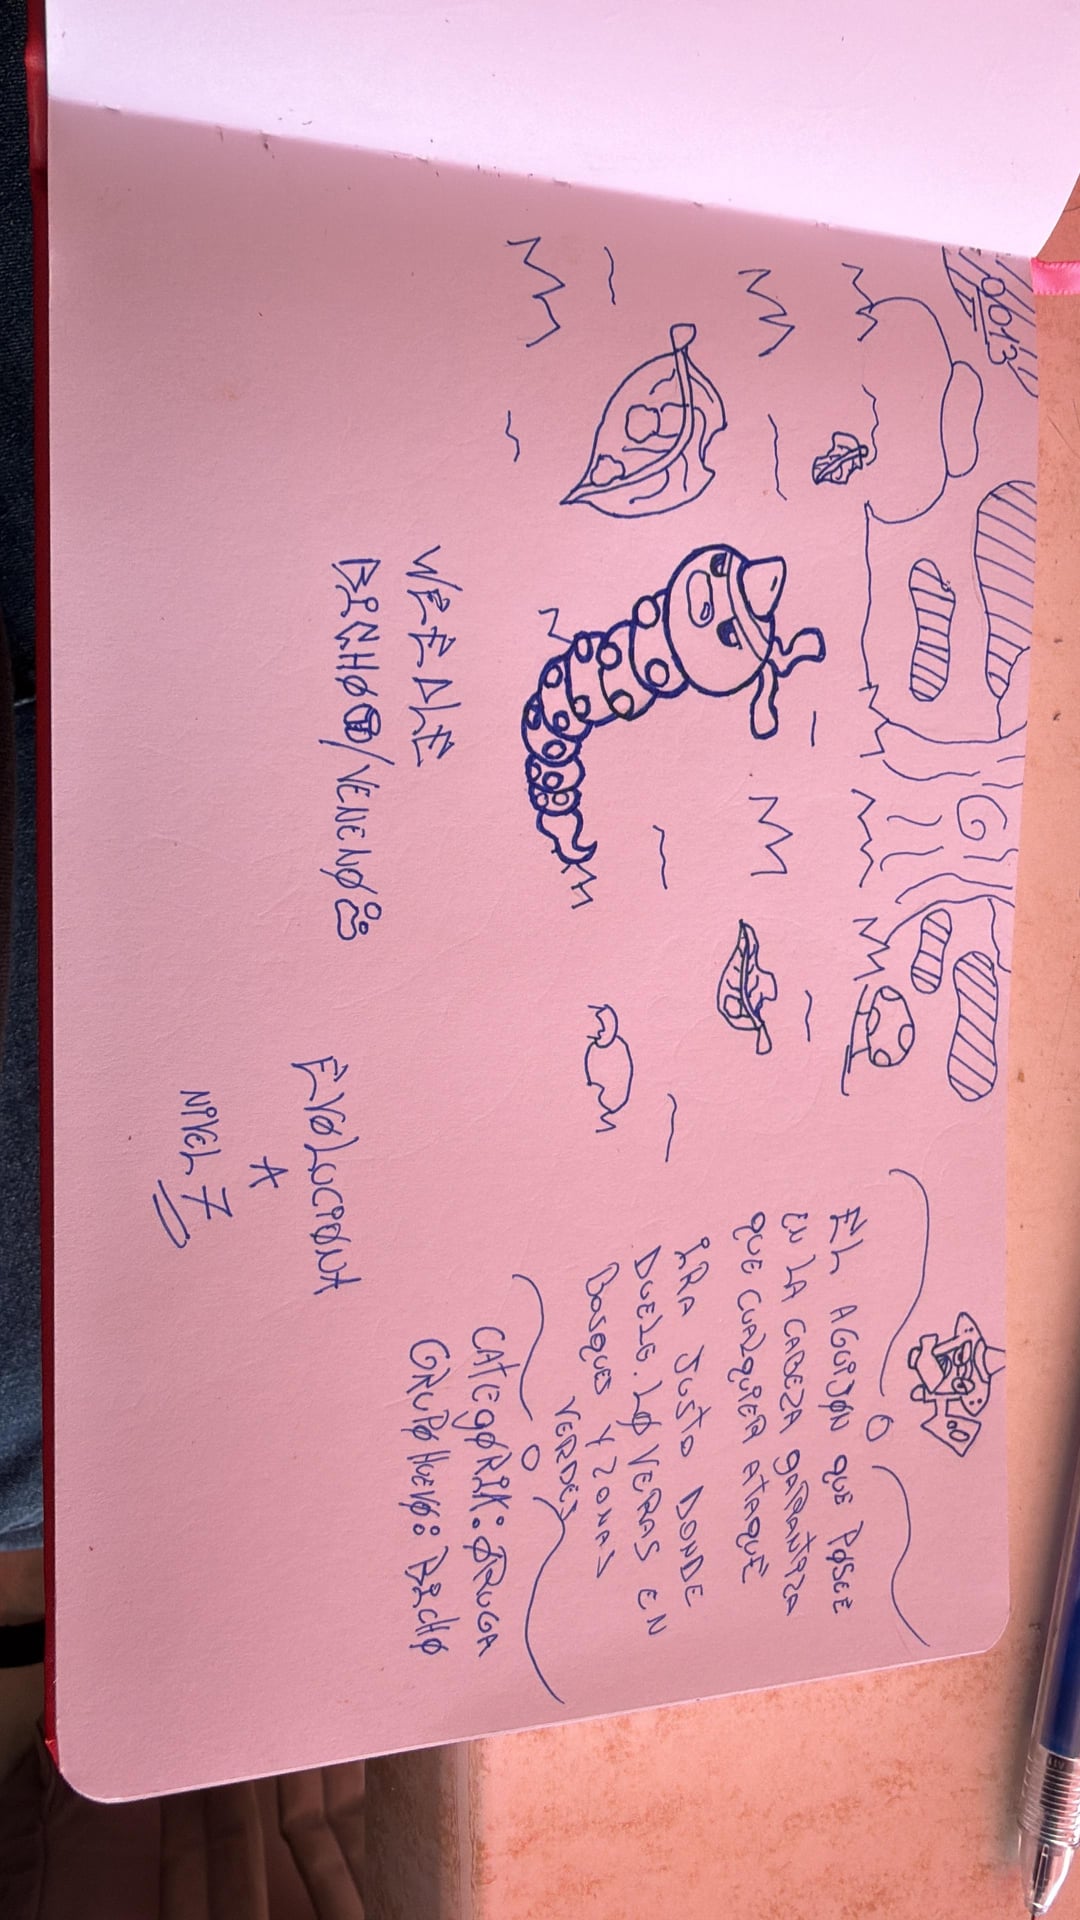 0013
WEEDLE
BICHO/VENENO
EVOLUCIONA
A
NIVEL 7
EL AGUIJON QUE POSEE
EN LA CABEZA GARANTIZA
QUE CUALQUIER ATAQUE
IRA JUSTO DONDE
DUELE. LO VERAS EN
BOSQUES Y ZONAS
VERDES
CATEGORIA: ORUGA
GRUPO HUEVO: BICHO